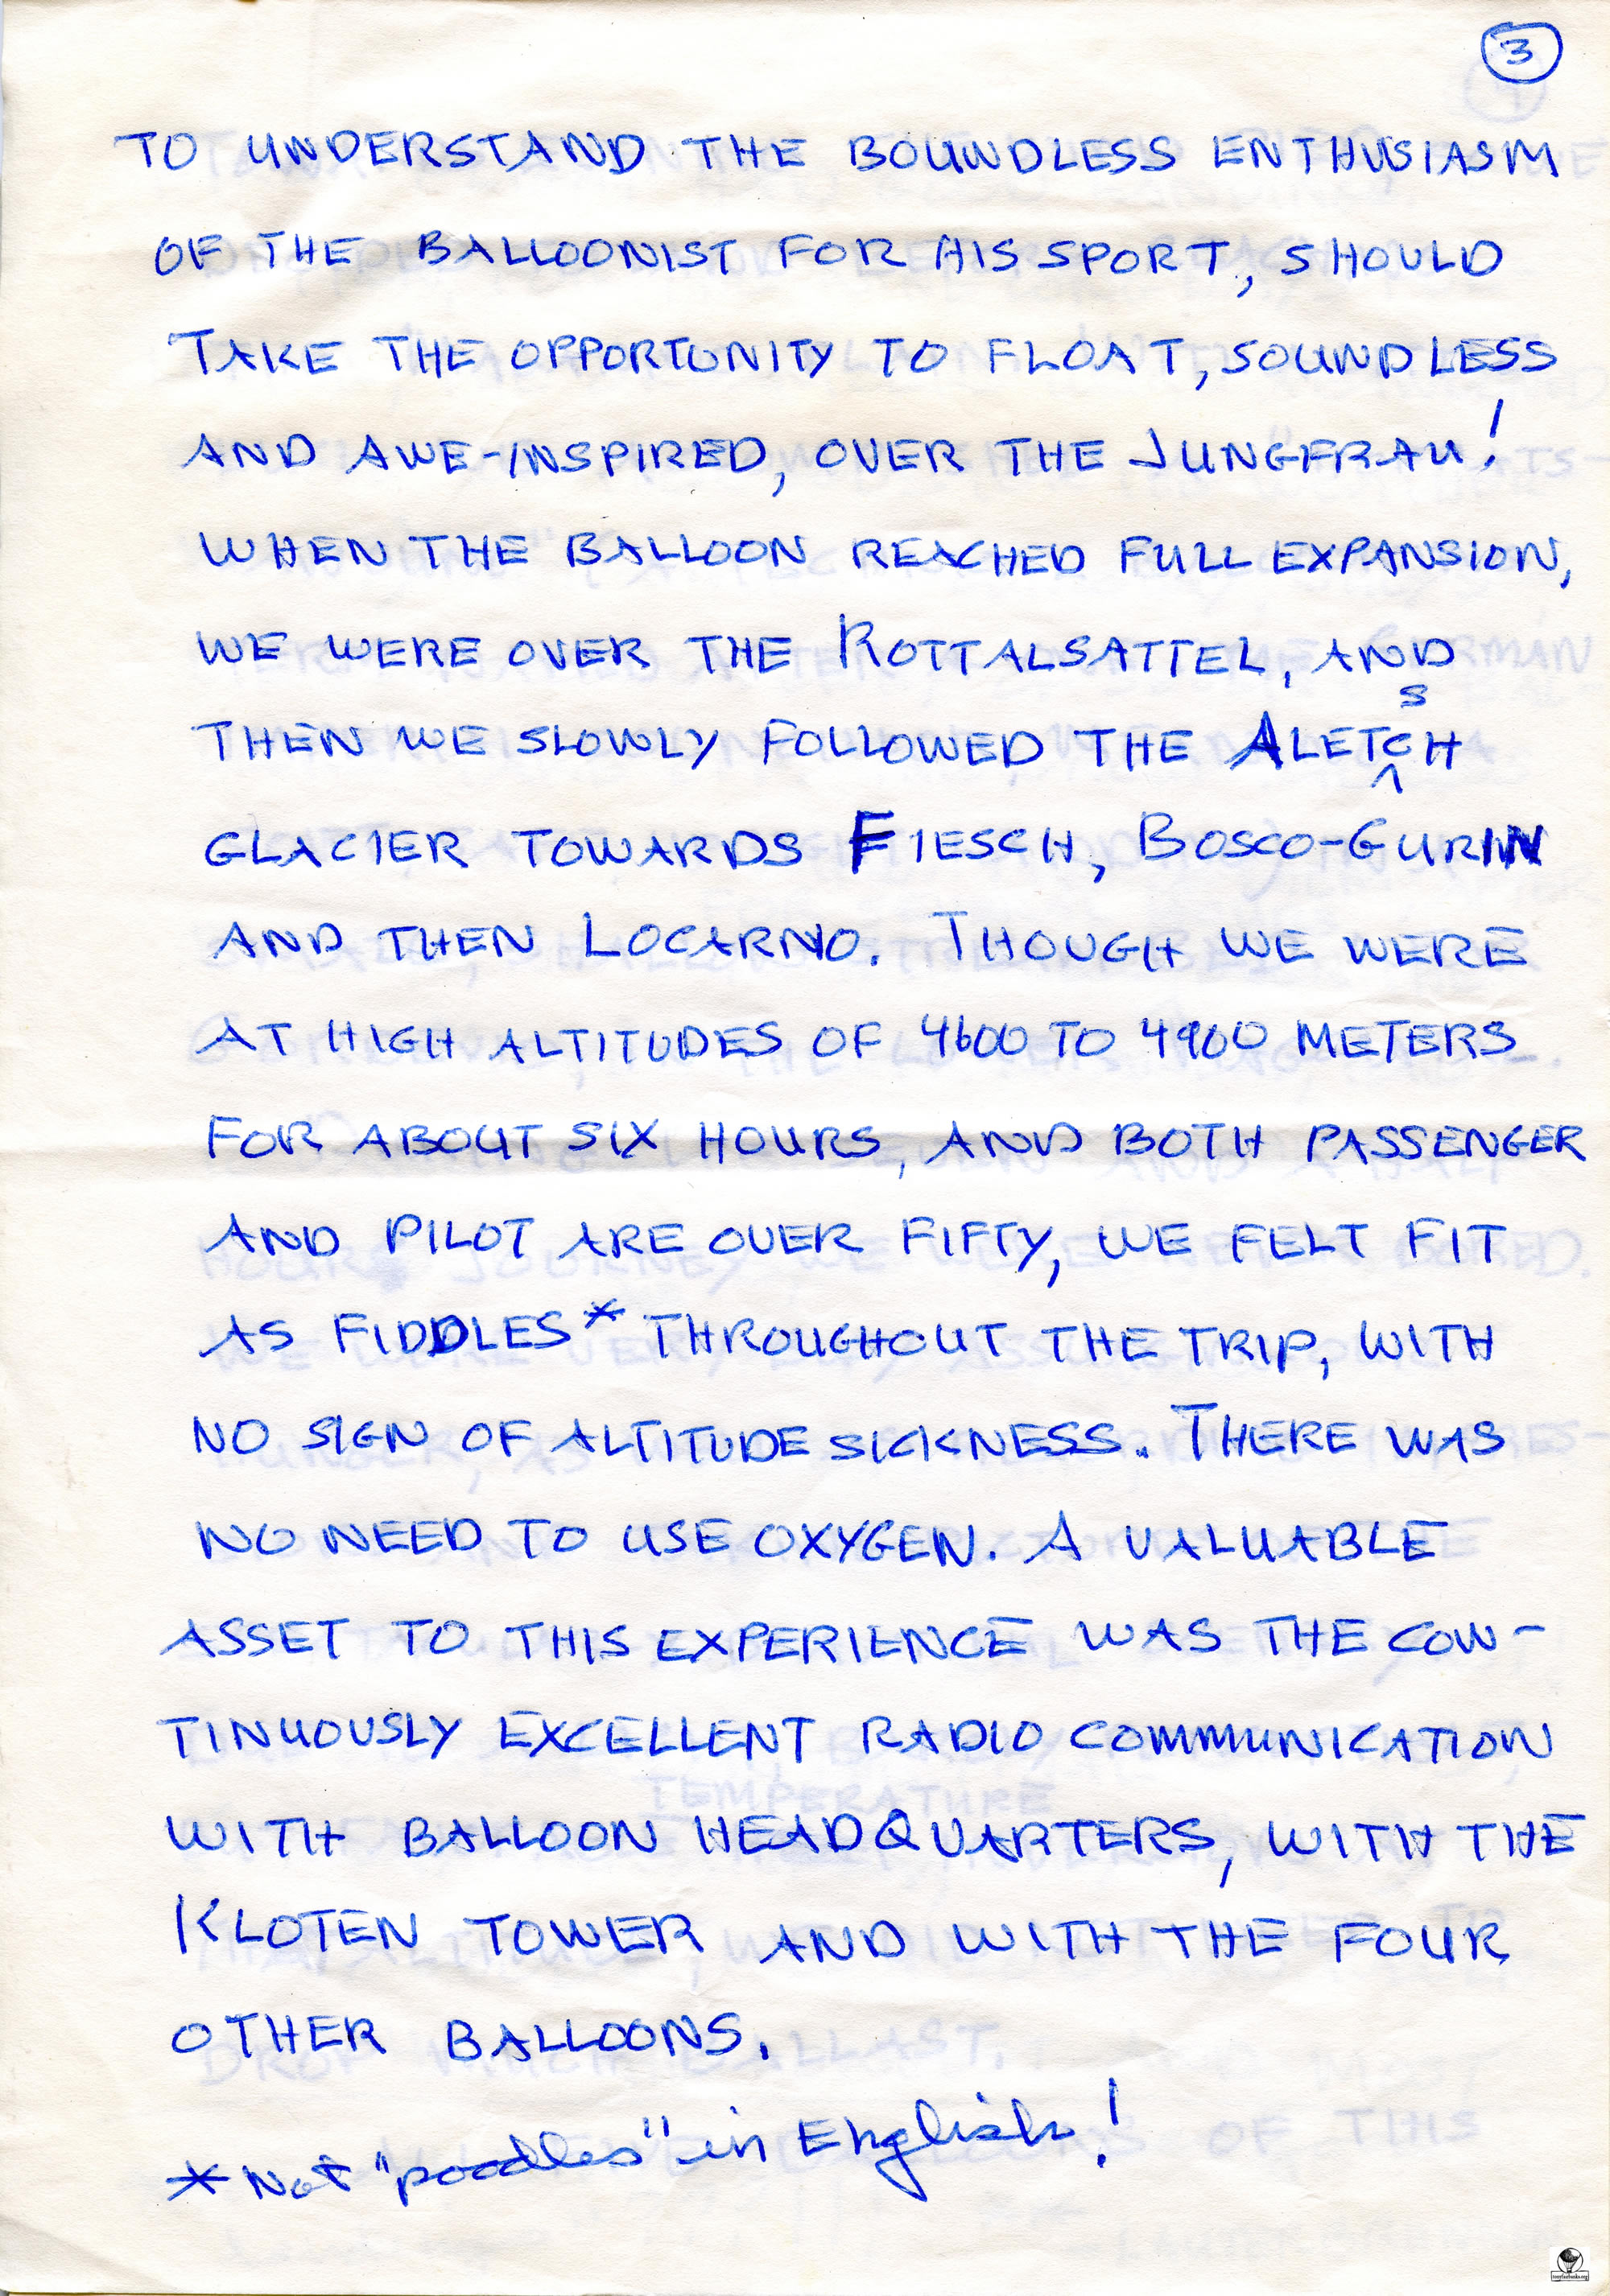 3
TO UNDERSTAND THE BOUNDLESS ENTHUSIASM
OF THE BALLOONIST FOR HIS SPORT, SHOULD
TAKE THE OPPORTUNITY TO FLOAT, SOUNDLESS
AND AWE-INSPIRED, OVER THE JUNGFRAU!
WHEN THE BALLOON REACHED FULL EXPANSION,
WE WERE OVER THE ROTTALSATTEL, AND
THEN WE SLOWLY FOLLOWED THE ALETSCH
GLACIER TOWARDS FIESCH, BOSCO-GURIN
AND THEN LOCARNO. THOUGH WE WERE
AT HIGH ALTITUDES OF 4600 TO 4900 METERS
FOR ABOUT SIX HOURS, AND BOTH PASSENGER
AND PILOT ARE OVER FIFTY, WE FELT FIT
AS FIDDLES* THROUGHOUT THE TRIP, WITH
NO SIGN OF ALTITUDE SICKNESS. THERE WAS
NO NEED TO USE OXYGEN. A VALUABLE
ASSET TO THIS EXPERIENCE WAS THE CON-
TINUOUSLY EXCELLENT RADIO COMMUNICATION
WITH BALLOON HEADQUARTERS, WITH THE
KLOTEN TOWER AND WITH THE FOUR
OTHER BALLOONS.
* Not "poodles" in English!